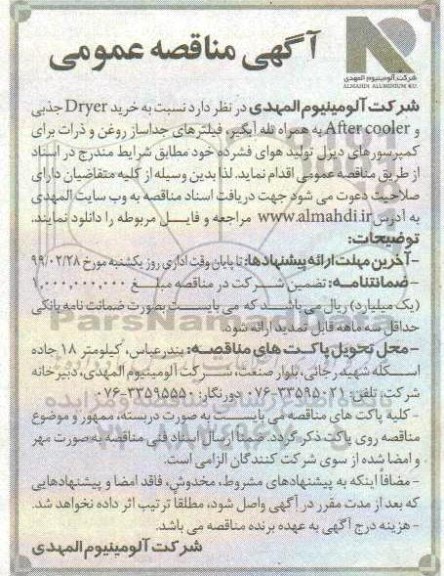 آگهی مناقصه عمومی
شرکت آلومینیوم المهدی
ALMAHDI ALUMINIUM CO
شرکت آلومینیوم المهدی در نظر دارد نسبت به خرید Dryer جذبی
و After cooler به همراه تله آبگیر، فیلترهای جداساز روغن و ذرات برای
کمپرسورهای دیزل تولید هوای فشرده خود مطابق شرایط مندرج در اسناد
از طریق مناقصه عمومی اقدام نماید. لذا بدین وسیله از کلیه متقاضیان دارای
صلاحیت دعوت می شود جهت دریافت اسناد مناقصه به وب سایت المهدی
به آدرس www.almahdi.ir مراجعه و فایــل مربوطه را دانلود نمایند.
توضیحات:
-آخرین مهلت ارائه پیشنهادها: تا پایان وقت اداری روز یکشنبه مورخ ۹۹/۰۲/۲۸
-ضمانتنامه: تضمین شــرکت در مناقصه مبلــغ ۱,۰۰۰,۰۰۰,۰۰۰
(یک میلیارد) ریال می باشــد که می بایســت بصورت ضمانت نامه بانکی
حداقل سه ماهه قابل تمدید ارائه شود.
-محل تحویل پاکـت های مناقصـه: بندرعباس، کیلومتر ۱۸ جاده
اسـکله شهید رجائی، بلوار صنعت، شــرکت آلومینیوم المهدی، دبیرخانه
شرکت تلفن: ۳۳۵۹۵۰۲۱-۰۷۶ دورنگار: ۳۳۵۹۵۵۵۰-۰۷۶
- کلیه پاکت های مناقصه می بایســت به صورت دربسته، ممهور و موضوع
مناقصه روی پاکت ذکر گردد. ضمنا ارسال اسناد فنی مناقصه به صورت مهر
و امضا شده از سوی شرکت کنندگان الزامی است.
- مضافا اینکه به پیشنهادهای مشروط، مخدوش، فاقد امضا و پیشنهادهایی
که بعد از مدت مقرر در آگهی واصل شود، مطلقا ترتیب اثر داده نخواهد شد.
- هزینه درج آگهی به عهده برنده مناقصه می باشد.
شرکت آلومینیوم المهدی